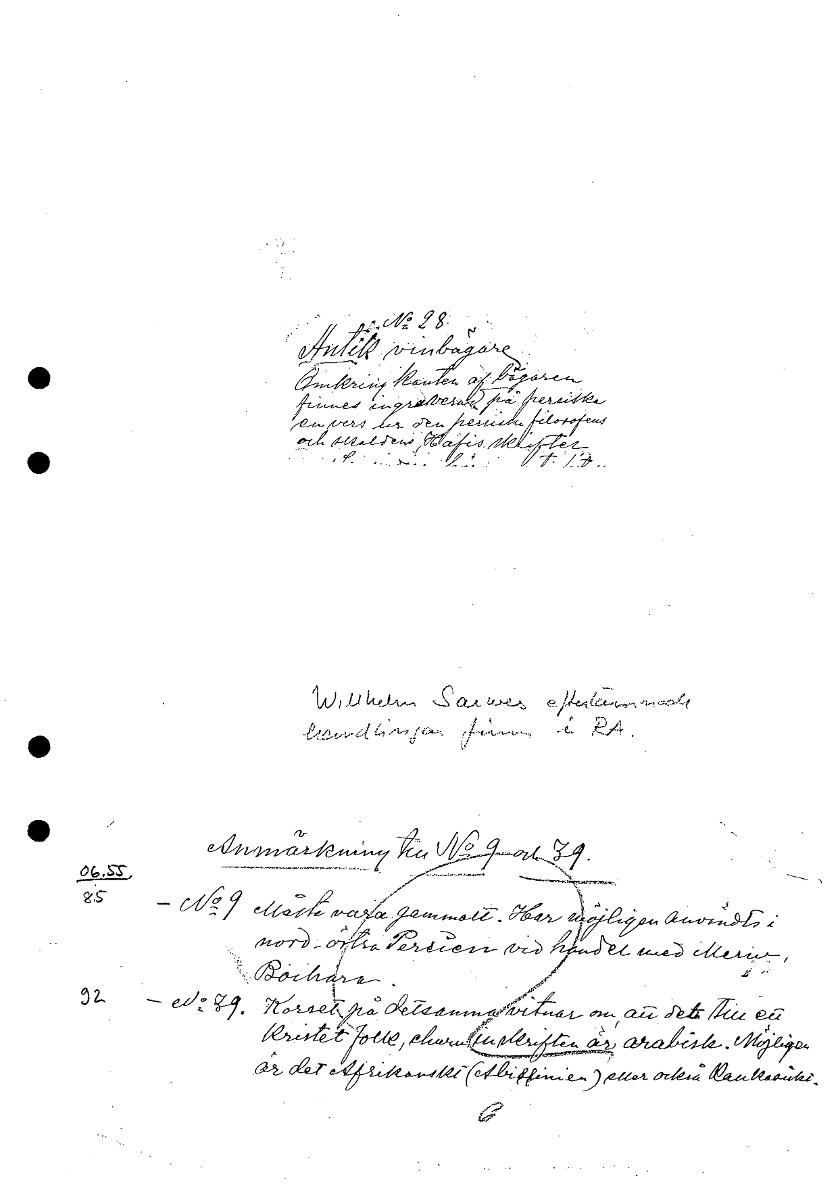 No 28
Antik vinbägare
Omkring kanten af bägaren
finnes ingraverad på persiska
en vers ur den persiske filosofens
och skaldens Hafis skrifter
Wilhelm Sarwes efterlämnade
handlingar finns i RA.
Anmärkning till No 9 och 39.
06.55
85
- No 9 Måste vara gammalt. Har möjligen användts i
nord-östra Persien vid handel med Merw,
Bochara.
92
- No 39. Korset på detsamma vitnar om, att det till en
kristet folk, ehuru inskriften är arabisk. Möjligen
är det Afrikanskt (Abissinien) eller också Kaukasiskt.